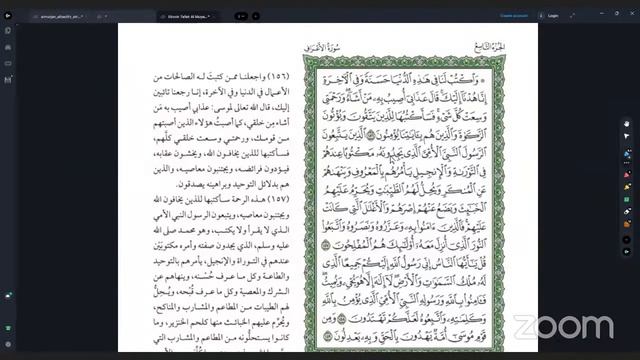 Create account
Login
الجزء التاسع
سورة الأعراف
۞ وَٱكۡتُبۡ لَنَا فِي هَٰذِهِ ٱلدُّنۡيَا حَسَنَةٗ وَفِي ٱلۡأٓخِرَةِ
إِنَّا هُدۡنَآ إِلَيۡكَۚ قَالَ عَذَابِيٓ أُصِيبُ بِهِۦ مَنۡ أَشَآءُۖ وَرَحۡمَتِي
وَسِعَتۡ كُلَّ شَيۡءٖۚ فَسَأَكۡتُبُهَا لِلَّذِينَ يَتَّقُونَ وَيُؤۡتُونَ
ٱلزَّكَوٰةَ وَٱلَّذِينَ هُم بِـَٔايَٰتِنَا يُؤۡمِنُونَ ١٥٦ ٱلَّذِينَ يَتَّبِعُونَ
ٱلرَّسُولَ ٱلنَّبِيَّ ٱلۡأُمِّيَّ ٱلَّذِي يَجِدُونَهُۥ مَكۡتُوبًا عِندَهُمۡ
فِي ٱلتَّوۡرَىٰةِ وَٱلۡإِنجِيلِ يَأۡمُرُهُم بِٱلۡمَعۡرُوفِ وَيَنۡهَىٰهُمۡ
عَنِ ٱلۡمُنكَرِ وَيُحِلُّ لَهُمُ ٱلطَّيِّبَٰتِ وَيُحَرِّمُ عَلَيۡهِمُ
ٱلۡخَبَٰٓئِثَ وَيَضَعُ عَنۡهُمۡ إِصۡرَهُمۡ وَٱلۡأَغۡلَٰلَ ٱلَّتِي كَانَتۡ
عَلَيۡهِمۡۚ فَٱلَّذِينَ ءَامَنُواْ بِهِۦ وَعَزَّرُوهُ وَنَصَرُوهُ وَٱتَّبَعُواْ
ٱلنُّورَ ٱلَّذِيٓ أُنزِلَ مَعَهُۥٓ أُوْلَٰٓئِكَ هُمُ ٱلۡمُفۡلِحُونَ ١٥٧
قُلۡ يَٰٓأَيُّهَا ٱلنَّاسُ إِنِّي رَسُولُ ٱللَّهِ إِلَيۡكُمۡ جَمِيعًا ٱلَّذِي
لَهُۥ مُلۡكُ ٱلسَّمَٰوَٰتِ وَٱلۡأَرۡضِۖ لَآ إِلَٰهَ إِلَّا هُوَ يُحۡيِۦ وَيُمِيتُۖ
فَـَٔامِنُواْ بِٱللَّهِ وَرَسُولِهِ ٱلنَّبِيِّ ٱلۡأُمِّيِّ ٱلَّذِي يُؤۡمِنُ بِٱللَّهِ
وَكَلِمَٰتِهِۦ وَٱتَّبِعُوهُ لَعَلَّكُمۡ تَهۡتَدُونَ ١٥٨ وَمِن
قَوۡمِ مُوسَىٰٓ أُمَّةٞ يَهۡدُونَ بِٱلۡحَقِّ وَبِهِۦ يَعۡدِلُونَ ١٥٩
(١٥٦) واجعلنا ممن كتبتَ له الصالحات من
الأعمال في الدنيا وفي الآخرة، إنا رجعنا تائبين
إليك، قال الله تعالى لموسى: عذابي أصيب به مَن
أشاء مِن خلقي، كما أصبتُ هؤلاء الذين أصبتهم
من قومك، ورحمتي وسعت خلقي كلَّهم،
فسأكتبها للذين يخافون الله، ويخشون عقابه،
فيؤدون فرائضه، ويجتنبون معاصيه، والذين
هم بدلائل التوحيد وبراهينه يصدقون.
(١٥٧) هذه الرحمة سأكتبها للذين يخافون الله
ويجتنبون معاصيه، ويتبعون الرسول النبي الأمي
الذي لا يقرأ ولا يكتب، وهو محمد صلى الله
عليه وسلم، الذي يجدون صفته وأمره مكتوبَيْن
عندهم في التوراة والإنجيل، يأمرهم بالتوحيد
والطاعة وكل ما عرف حُسْنه، وينهاهم عن
الشرك والمعصية وكل ما عرف قُبْحه، ويُحِلُّ
لهم الطيبات من المطاعم والمشارب والمناكح،
ويُحرِّم عليهم الخبائث منها كلحم الخنزير، وما
كانوا يستحلُّونه من المطاعم والمشارب التي
zoom